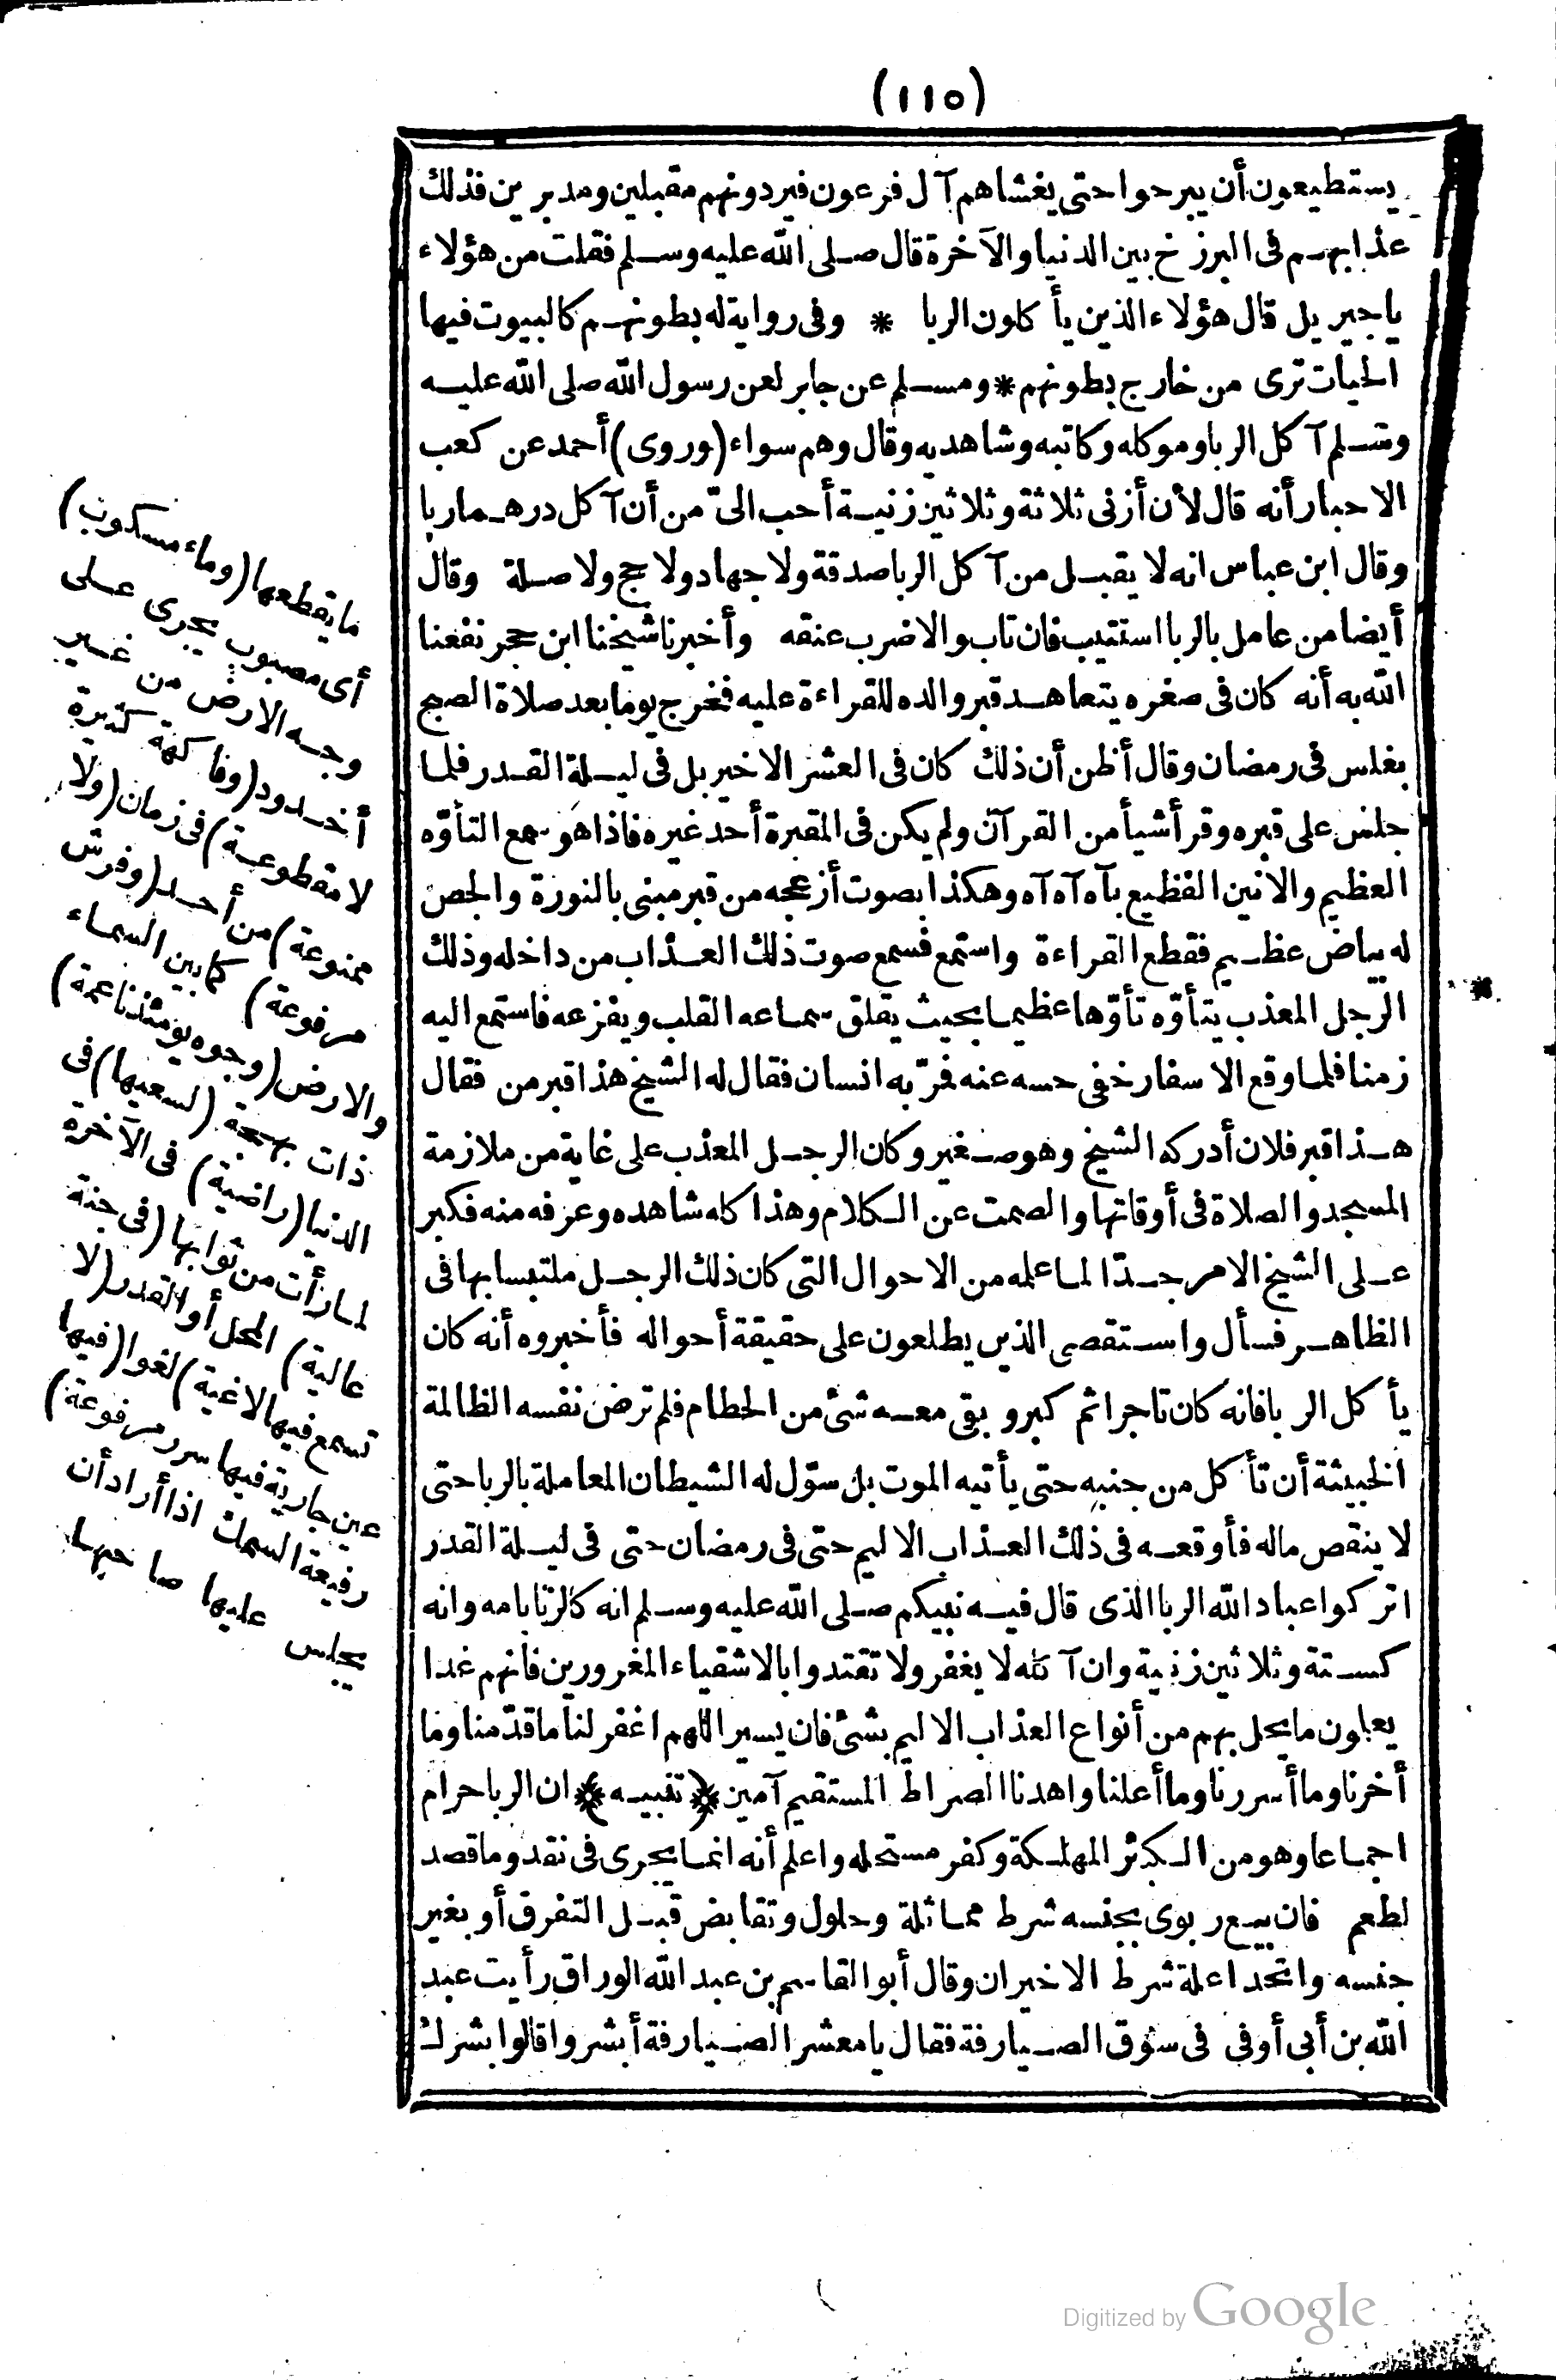 (١١٥)
يستطيعون أن يبرحوا حتى يغشاهم آل فرعون فيردونهم مقبلين ومدبرين فذلك
عذابهم فى البرزخ بين الدنيا والآخرة قال صلى الله عليه وسلم فقلت من هؤلاء
ياجبريل قال هؤلاء الذين يأكلون الربا * وفى رواية له بطونهم كالبيوت فيها
الحيات ترى من خارج بطونهم * ومسلم عن جابر لعن رسول الله صلى الله عليه
وسلم آكل الربا وموكله وكاتبه وشاهديه وقال وهم سواء (وروى) أحمد عن كعب
الاحبار أنه قال لأن أزنى ثلاثة وثلاثين زنية أحب الىّ من أن آكل درهما ربا
وقال ابن عباس انه لا يقبل من آكل الربا صدقة ولا جهاد ولا حج ولا صلة وقال
أيضا من عامل بالربا استتيب فان تاب والا ضرب عنقه وأخبرنا شيخنا ابن حجر نفعنا
الله به أنه كان فى صغره يتعاهد قبر والده للقراءة عليه فخرج يوما بعد صلاة الصبح
بغلس فى رمضان وقال أظن أن ذلك كان فى العشر الاخير بل فى ليلة القدر فلما
جلس على قبره وقرأ شيأ من القرآن ولم يكن فى المقبرة أحد غيره فاذا هو يسمع التأوّه
العظيم والانين الفظيع بآه آه آه وهكذا بصوت أزعجه من قبر مبنى بالنورة والجص
له بياض عظيم فقطع القراءة واستمع فسمع صوت ذلك العذاب من داخله وذلك
الرجل المعذب يتأوّه تأوّها عظيما بحيث يقلق سماعه القلب ويفزعه فاستمع اليه
زمنا فلما وقع الاسفار خفى حسه عنه فمرّ به انسان فقال له الشيخ هذا قبر من فقال
هذا قبر فلان أدركه الشيخ وهو صغير وكان الرجل المعذب على غاية من ملازمة
المسجد والصلاة فى أوقاتها والصمت عن الكلام وهذا كله شاهده وعرفه منه فكبر
على الشيخ الامر جدّا لما علمه من الاحوال التى كان ذلك الرجل ملتبسا بها فى
الظاهر فسأل واستقصى الذين يطلعون على حقيقة أحواله فأخبروه أنه كان
يأكل الربا فانه كان تاجرا ثم كبر وبقى معه شئ من الحطام فلم ترض نفسه الظالمة
الخبيثة أن تأكل من جنبه حتى يأتيه الموت بل سوّل له الشيطان المعاملة بالربا حتى
لا ينقص ماله فأوقعه فى ذلك العذاب الاليم حتى فى رمضان حتى فى ليلة القدر
اتركوا عباد الله الربا الذى قال فيه نبيكم صلى الله عليه وسلم انه كالزنا بامه وانه
كستة وثلاثين زنية وان آكله لا يغفر ولا تقتدوا بالاشقياء المغرورين فانهم غدا
يعلمون ما يحل بهم من أنواع العذاب الاليم بشئ فان يسير اللهم اغفر لنا ما قدّمنا وما
أخرنا وما أسررنا وما أعلنا واهدنا الصراط المستقيم آمين ﴿تنبيه﴾ ان الربا حرام
اجماعا وهو من الكبائر المهلكة وكفر مستحله واعلم أنه انما يجرى فى نقد وما قصد
لطعم فان بيع ربوى بجنسه شرط مماثلة وحلول وتقابض قبل التفرق أو بغير
جنسه واتحدا علة شرط الاخيران وقال أبو القاسم بن عبد الله الوراق رأيت عبد
الله بن أبى أوفى فى سوق الصيارفة فقال يا معشر الصيارفة أبشروا قالوا بشرك
ما يقطعها (وماء مسكوب)
أى مصبوب يجرى على
وجه الارض من غير
أخدود (وفاكهة كثيرة
لا مقطوعة) فى زمان (ولا
ممنوعة) من أحد (وفرش
مرفوعة) كما بين السماء
والارض (وجوه يومئذ ناعمة)
ذات بهجة (لسعيها) فى
الدنيا (راضية) فى الآخرة
لما رأت من ثوابها (فى جنة
عالية) المحل أو القدر (لا
تسمع فيها لاغية) لغوا (فيها
عين جارية فيها سرر مرفوعة)
رفيعة السمك اذا أراد أن
يجلس عليها صاحبها
Digitized by Google